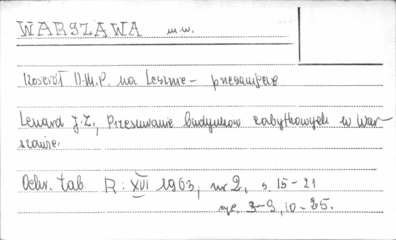 WARSZAWA m.w.
Kościół N.M.P. na Lesznie – przesunięcie
Lenard J.Z., Przesuwanie budynków zabytkowych w War-
szawie.
Ochr. Zab R: XVI 1963, nr 2, s. 15-21
ryc. 3-9, 10-35.